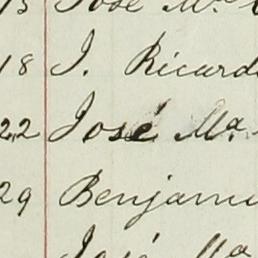 José Mª
18 J. Ricard
22 José Mª
29 Benjami
José Mª